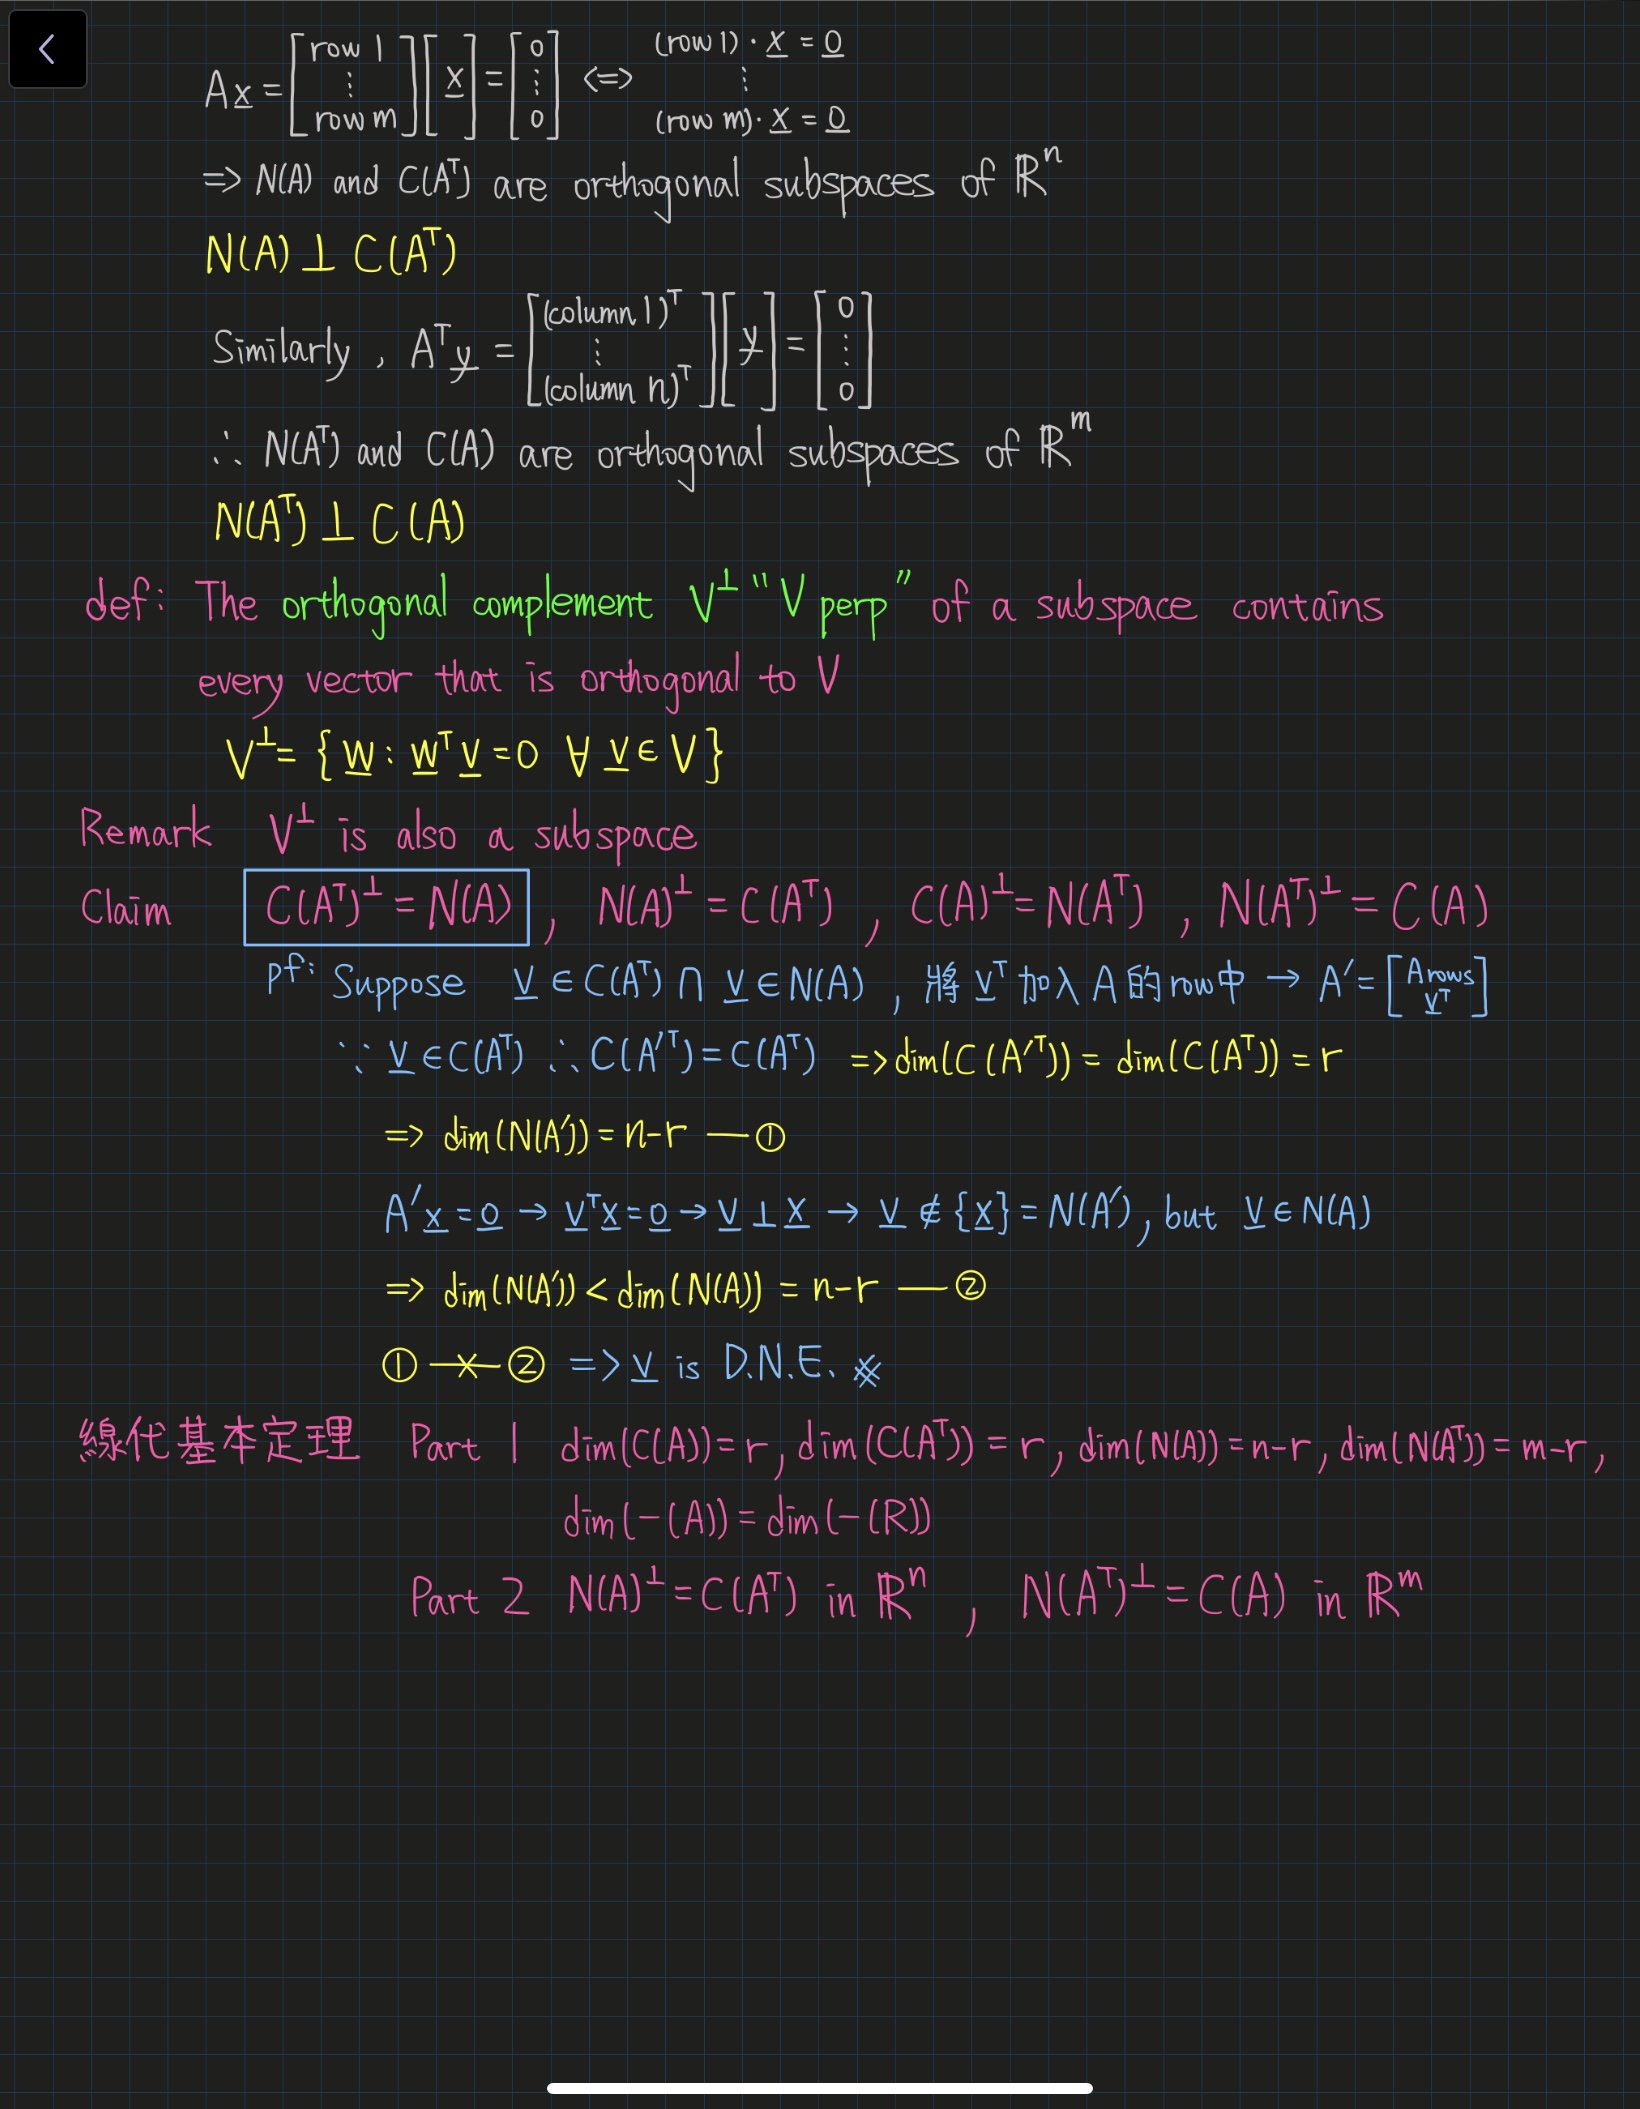 Ax = [row 1 ⋮ row m][x] = [0 ⋮ 0] <=> (row 1) · x = 0 ⋮ (row m) · x = 0
=> N(A) and C(Aᵀ) are orthogonal subspaces of ℝⁿ
N(A) ⊥ C(Aᵀ)
Similarly , Aᵀy = [(column 1)ᵀ ⋮ (column n)ᵀ][y] = [0 ⋮ 0]
∴ N(Aᵀ) and C(A) are orthogonal subspaces of ℝᵐ
N(Aᵀ) ⊥ C(A)
def: The orthogonal complement V^⊥ "V perp" of a subspace contains
every vector that is orthogonal to V
V^⊥ = {w : wᵀv = 0 ∀ v ∈ V}
Remark V^⊥ is also a subspace
Claim C(Aᵀ)^⊥ = N(A) , N(A)^⊥ = C(Aᵀ) , C(A)^⊥ = N(Aᵀ) , N(Aᵀ)^⊥ = C(A)
pf: Suppose v ∈ C(Aᵀ) ∩ v ∈ N(A) , 將 vᵀ 加入 A 的 row 中 → A′ = [A rows vᵀ]
∵ v ∈ C(Aᵀ) ∴ C(A′ᵀ) = C(Aᵀ) => dim(C(A′ᵀ)) = dim(C(Aᵀ)) = r
=> dim(N(A′)) = n-r — ①
A′x = 0 → vᵀx = 0 → v ⊥ x → v ∉ {x} = N(A′), but v ∈ N(A)
=> dim(N(A′)) < dim(N(A)) = n-r — ②
① —×— ② => v is D.N.E. ※
線代基本定理 Part 1 dim(C(A)) = r, dim(C(Aᵀ)) = r, dim(N(A)) = n-r, dim(N(Aᵀ)) = m-r,
dim(-(A)) = dim(-(R))
Part 2 N(A)^⊥ = C(Aᵀ) in ℝⁿ , N(Aᵀ)^⊥ = C(A) in ℝᵐ